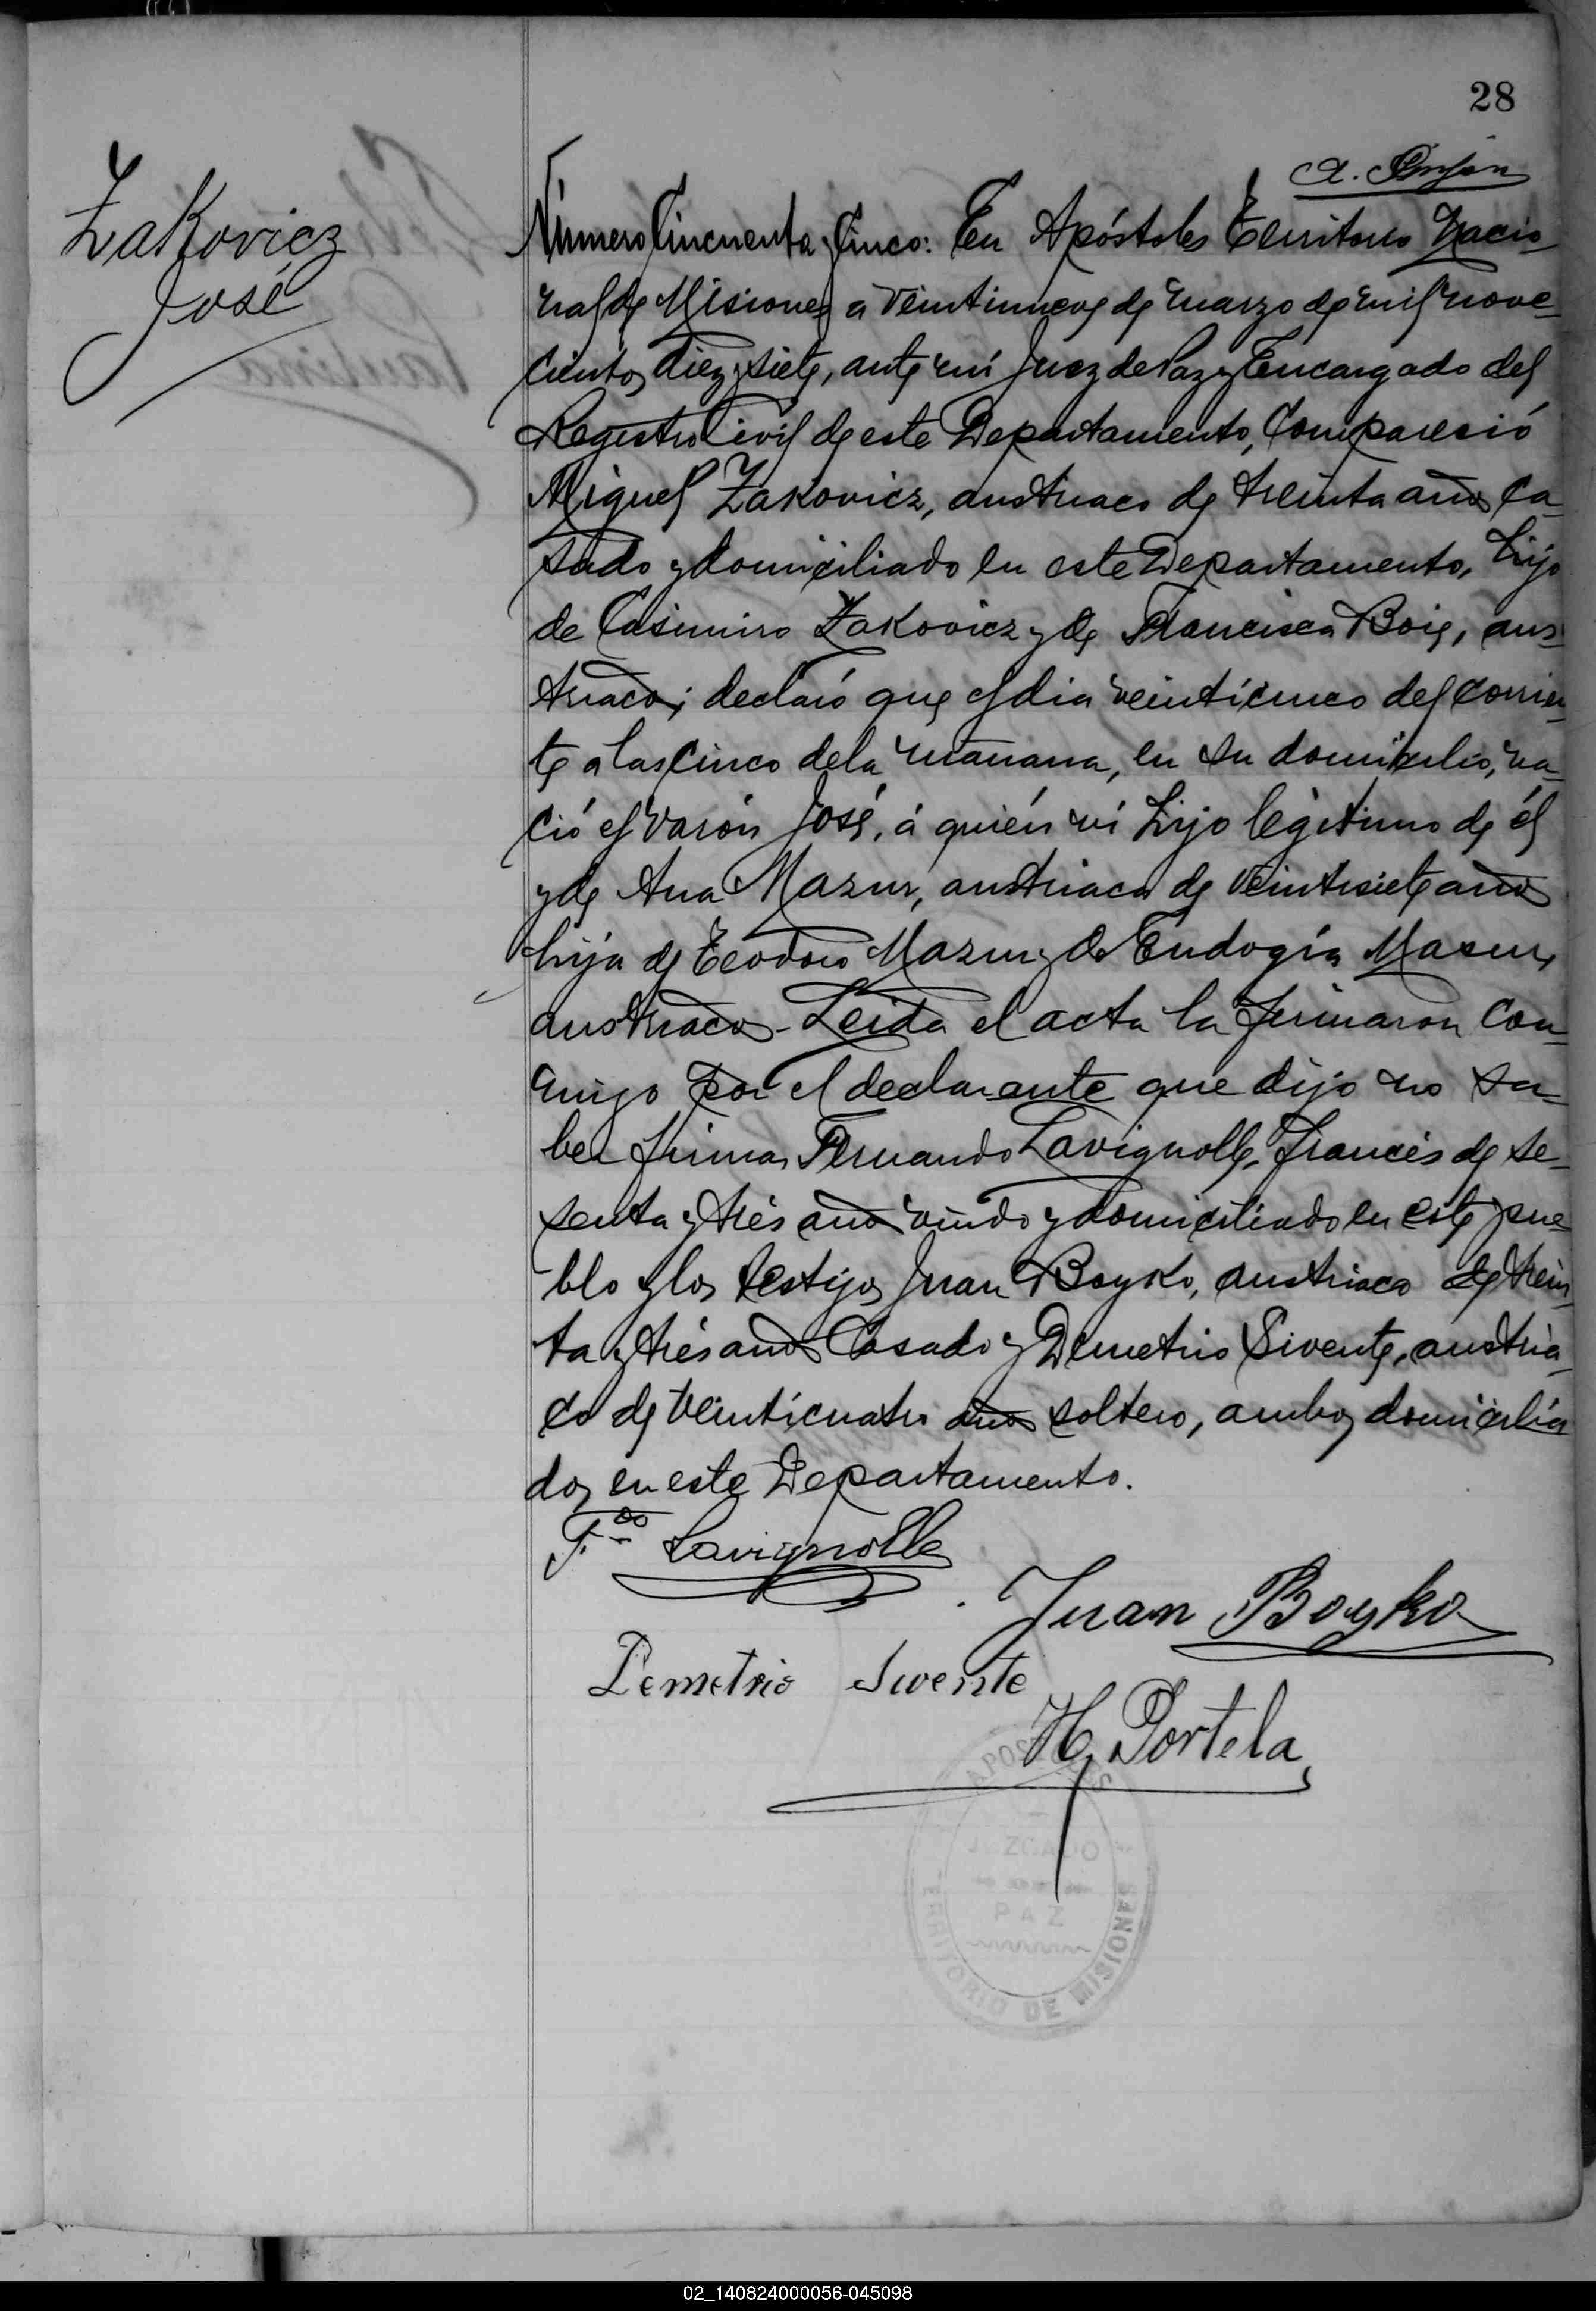 28
Zakovicz
José
Número Cincuenta y Cinco: En Apóstoles Territorio Nacio-
nal de Misiones a veintinueve de marzo de mil nove-
cientos diez y siete, ante mí Juez de Paz y Encargado del
Registro Civil de este Departamento, Comparesió
Miguel Zakovicz, austriaco de treinta años ca-
sado y domiciliado en este Departamento, hijo
de Casimiro Zakovicz y de Francisca Boig, aus-
triacos; declaró que el dia veinticinco del corrien-
te a las cinco de la mañana, en su domicilio, na-
ció el varón José, á quién ví hijo legítimo de él
y de Ana Mazur, austriaca de veintisiete años
hija de Teodoro Mazur y de Eudogia Masur,
austriacos - Leida el acta la firmaron con-
migo por el declarante que dijo no sa-
ber firmar Fernando Lavignolle, francés de se-
senta y trés años viudo y domiciliado en este pue-
blo y los testigos Juan Boyko, austriaco de trein-
ta y trés años Casado y Demetrio Sivente, austria-
co de veinticuatro años soltero, ambos domicilia-
dos en este Departamento.
F.do Lavignolle
Juan Boyko
Demetrio Swente
H. Portela
APOSTOLES
JUZGADO
PAZ
TERRITORIO DE MISIONES
02_140824000056-045098